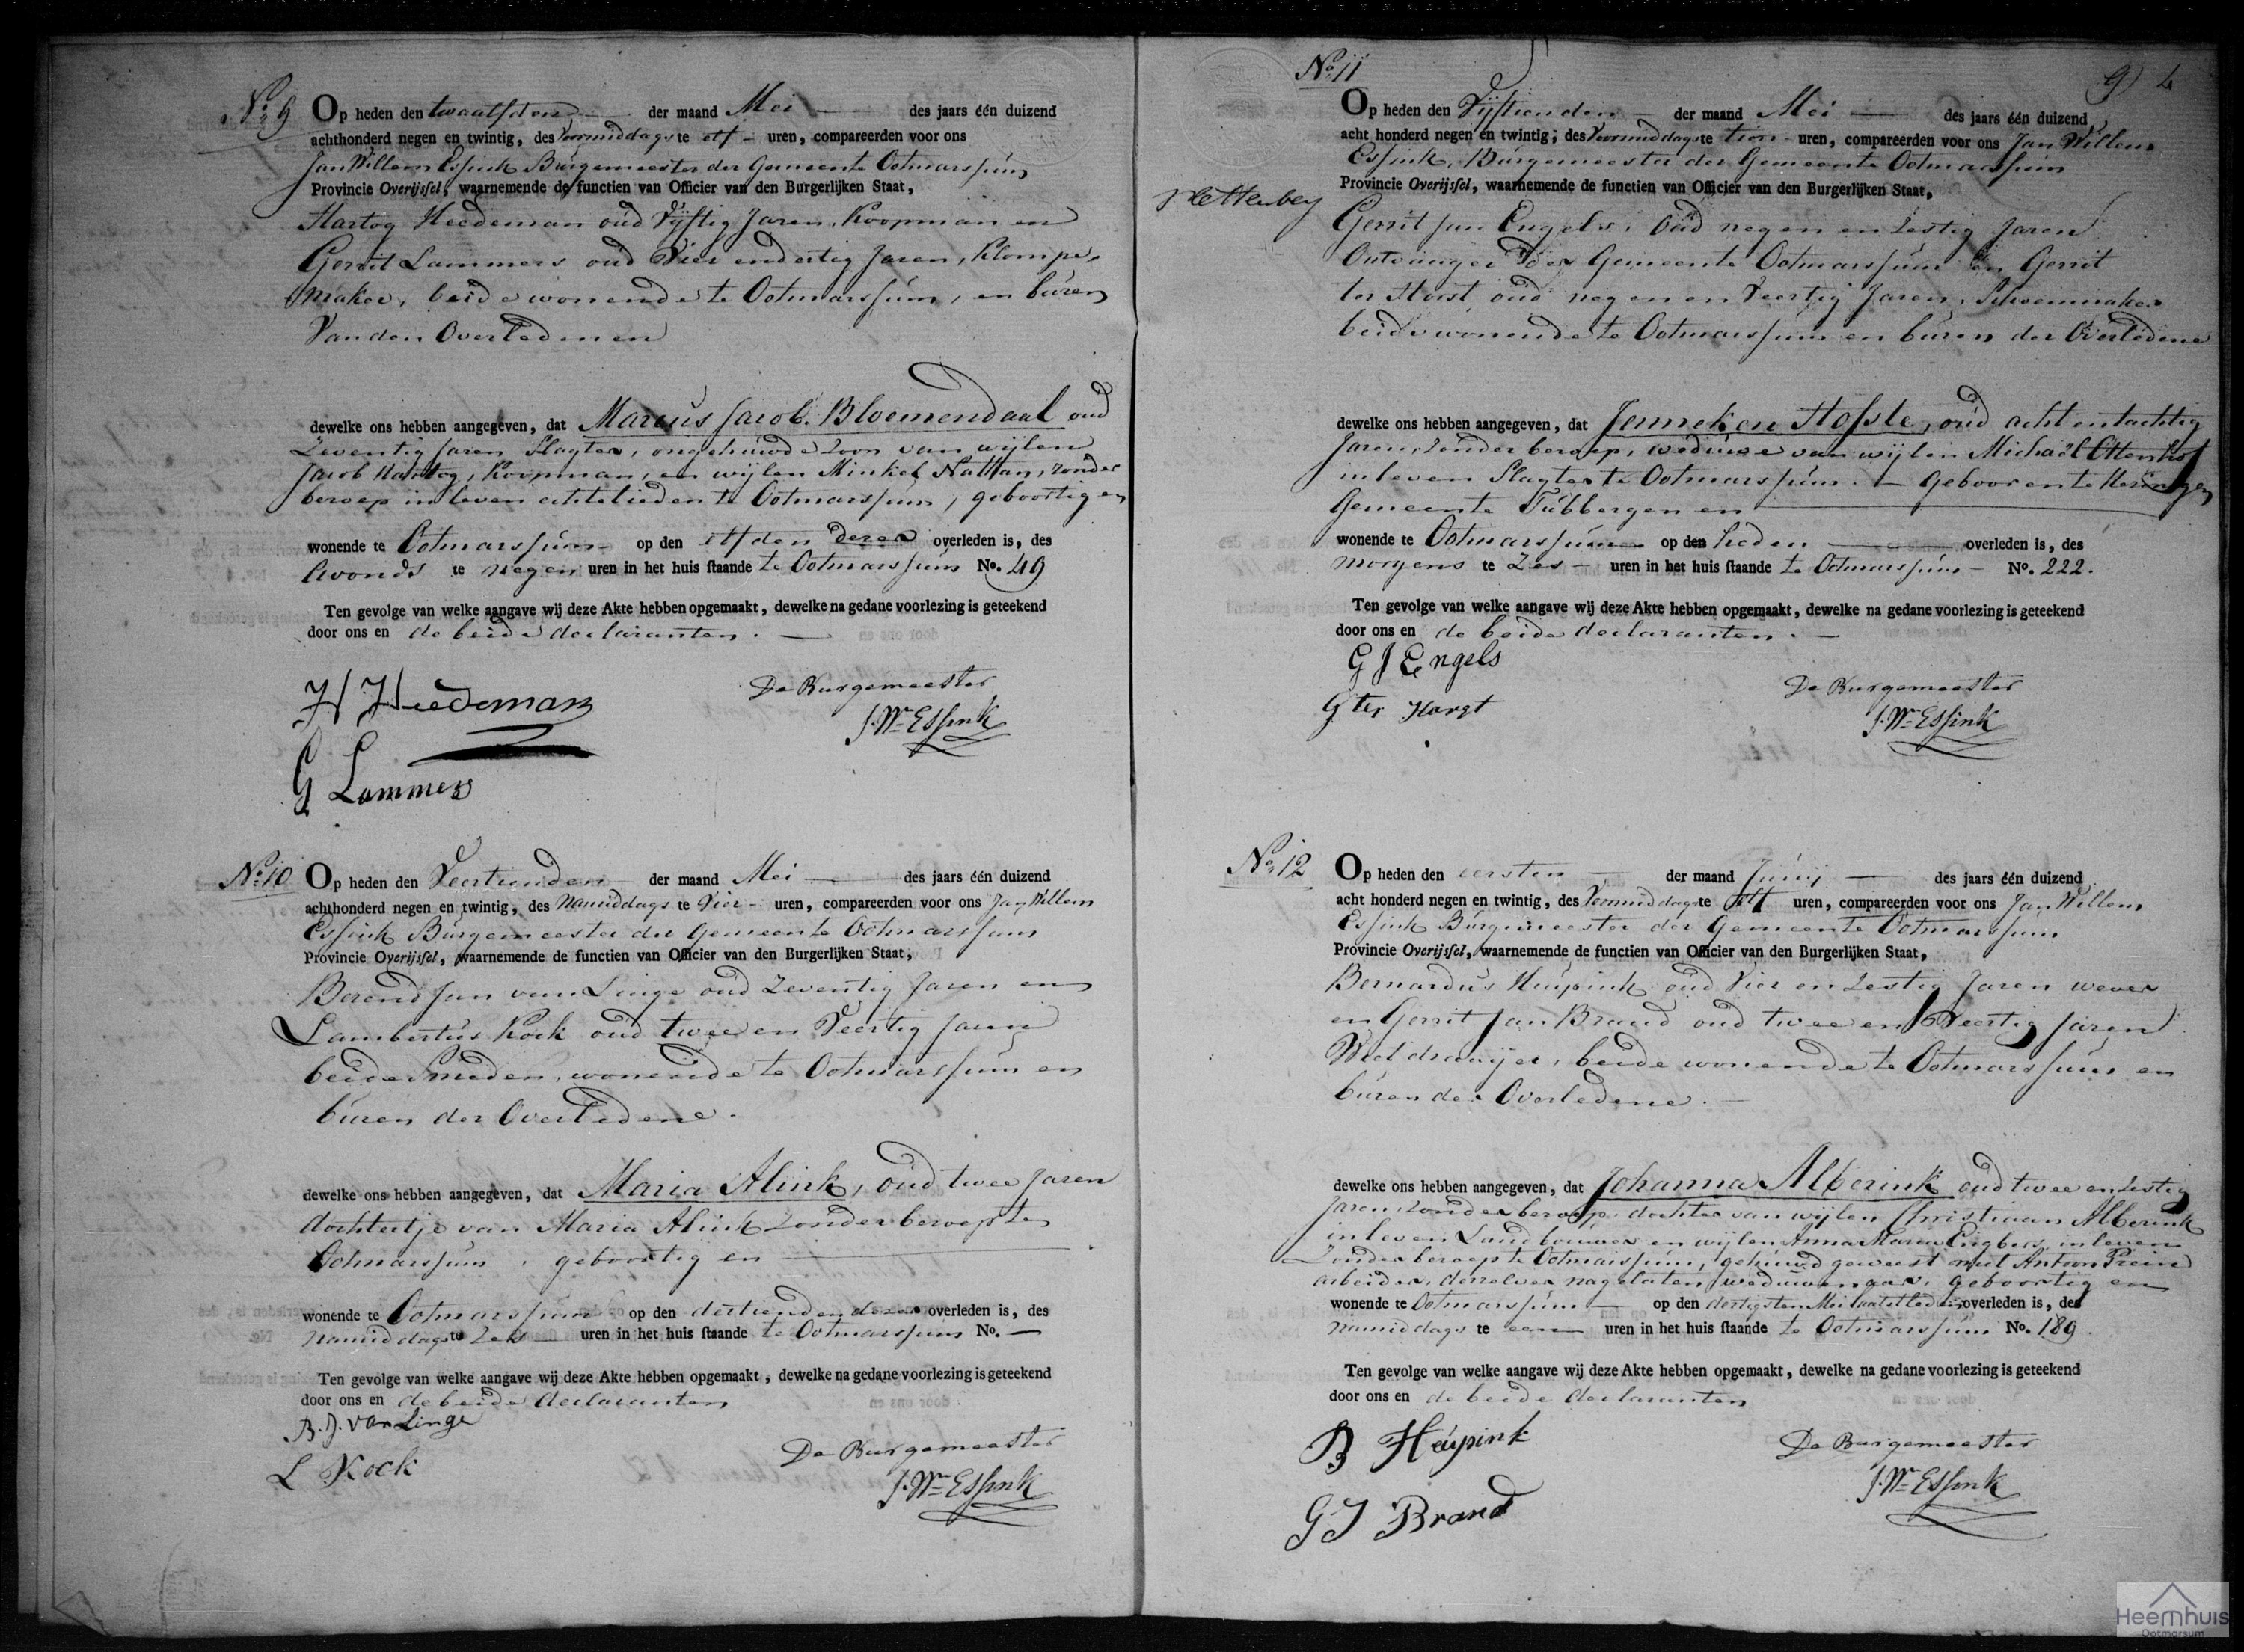 No 9
Op heden den twaalfden der maand Mei des jaars één duizend
achthonderd negen en twintig, des Voormiddags te elf uren, compareerden voor ons
Jan Willem Essink Burgemeester der Gemeente Ootmarssum
Provincie Overijssel, waarnemende de functien van Officier van den Burgerlijken Staat,
Hartog Heedeman oud Vijftig Jaren, Koopman en
Gerrit Lammers oud Vier endertig Jaren, Klompe,
maker, beide wonende te Ootmarssum, en buren
Van den Overledenen
dewelke ons hebben aangegeven, dat Marcus Jacob Bloemendaal oud
Zeventig Jaren Slagter, ongehuwde Zoon van wijlen
Jacob Hartog, Koopman, en wijlen Minkel Nathan, zonder
beroep in leven echtelieden te Ootmarssum, geboortig en
wonende te Ootmarssum op den elfden dezer overleden is, des
Avonds te negen uren in het huis staande te Ootmarssum No. 49
Ten gevolge van welke aangave wij deze Akte hebben opgemaakt, dewelke na gedane voorlezing is geteekend
door ons en de beide declaranten.
H Heedeman
De Burgemeester
J. Wm Essink
G Lammers
No 10
Op heden den Veertienden der maand Mei des jaars één duizend
achthonderd negen en twintig, des Namiddags te Vier uren, compareerden voor ons Jan Willem
Essink Burgemeester der Gemeente Ootmarssum
Provincie Overijssel, waarnemende de functien van Officier van den Burgerlijken Staat,
Berend Jan van Linge oud Zeventig Jaren en
Lambertus Kock oud twee en Veertig Jaren
beide Smeden, wonende te Ootmarssum en
buren der Overledene.
dewelke ons hebben aangegeven, dat Maria Alink, oud twee Jaren
dochtertje van Maria Alink zonder beroep te
Ootmarssum, geboortig en
wonende te Ootmarssum op den dertienden dezer overleden is, des
namiddags te Zes uren in het huis staande te Ootmarssum No. —
Ten gevolge van welke aangave wij deze Akte hebben opgemaakt, dewelke na gedane voorlezing is geteekend
door ons en de beide declaranten
B. J. van Linge
L Kock
De Burgemeester
J. Wm Essink
No 11
9) 4
Op heden den Vijftienden der maand Mei des jaars één duizend
acht honderd negen en twintig; des Voormiddags te tien uren, compareerden voor ons Jan Willem
Essink, Burgemeester der Gemeente Ootmarssum
Provincie Overijssel, waarnemende de functien van Officier van den Burgerlijken Staat,
Gerrit Jan Engels, oud negen en Zestig Jaren
Ontvanger der Gemeente Ootmarssum en Gerrit
ter Horst oud negen en Veertig Jaren, Schoenmaker
beide wonende te Ootmarssum en buren der Overledene
dewelke ons hebben aangegeven, dat Jenneken Hofste, oud acht entachtig
Jaren, zonder beroep, weduwe van wijlen Michaël Ottenhof
in leven Slagter te Ootmarssum. — Geboren te
Gemeente Tubbergen en
wonende te Ootmarssum op den heden overleden is, des
morgens te Zes uren in het huis staande te Ootmarssum No. 222.
Ten gevolge van welke aangave wij deze Akte hebben opgemaakt, dewelke na gedane voorlezing is geteekend
door ons en de beide declaranten.
G J Engels
G ter Horst
De Burgemeester
J. Wm Essink
No 12
Op heden den eersten der maand Junij des jaars één duizend
acht honderd negen en twintig, des Voormiddags te elf uren, compareerden voor ons Jan Willem
Essink Burgemeester der Gemeente Ootmarssum
Provincie Overijssel, waarnemende de functien van Officier van den Burgerlijken Staat,
Bernardus Huijpink oud Vier en Zestig Jaren wever
en Gerrit Jan Brand oud twee en Veertig Jaren
Wieldraaijer, beide wonende te Ootmarssum en
buren der Overledene.
dewelke ons hebben aangegeven, dat Johanna Alberink oud twee en Zestig
Jaren, zonder beroep, dochter van wijlen Christiaan Alberink
in leven Landbouwer en wijlen Anna Maria Engbers, in leven
Zonder beroep te Ootmarssum, gehuwd geweest met Antoon Prein
arbeider, derzelver nagelaten weduwenaar, geboortig en
wonende te Ootmarssum op den dertigsten Mei laatstleden overleden is, des
namiddags te een uren in het huis staande te Ootmarssum No. 189.
Ten gevolge van welke aangave wij deze Akte hebben opgemaakt, dewelke na gedane voorlezing is geteekend
door ons en de beide declaranten
B Huijpink
De Burgemeester
J. Wm Essink
G J Brand
Heemhuis
Ootmarsum